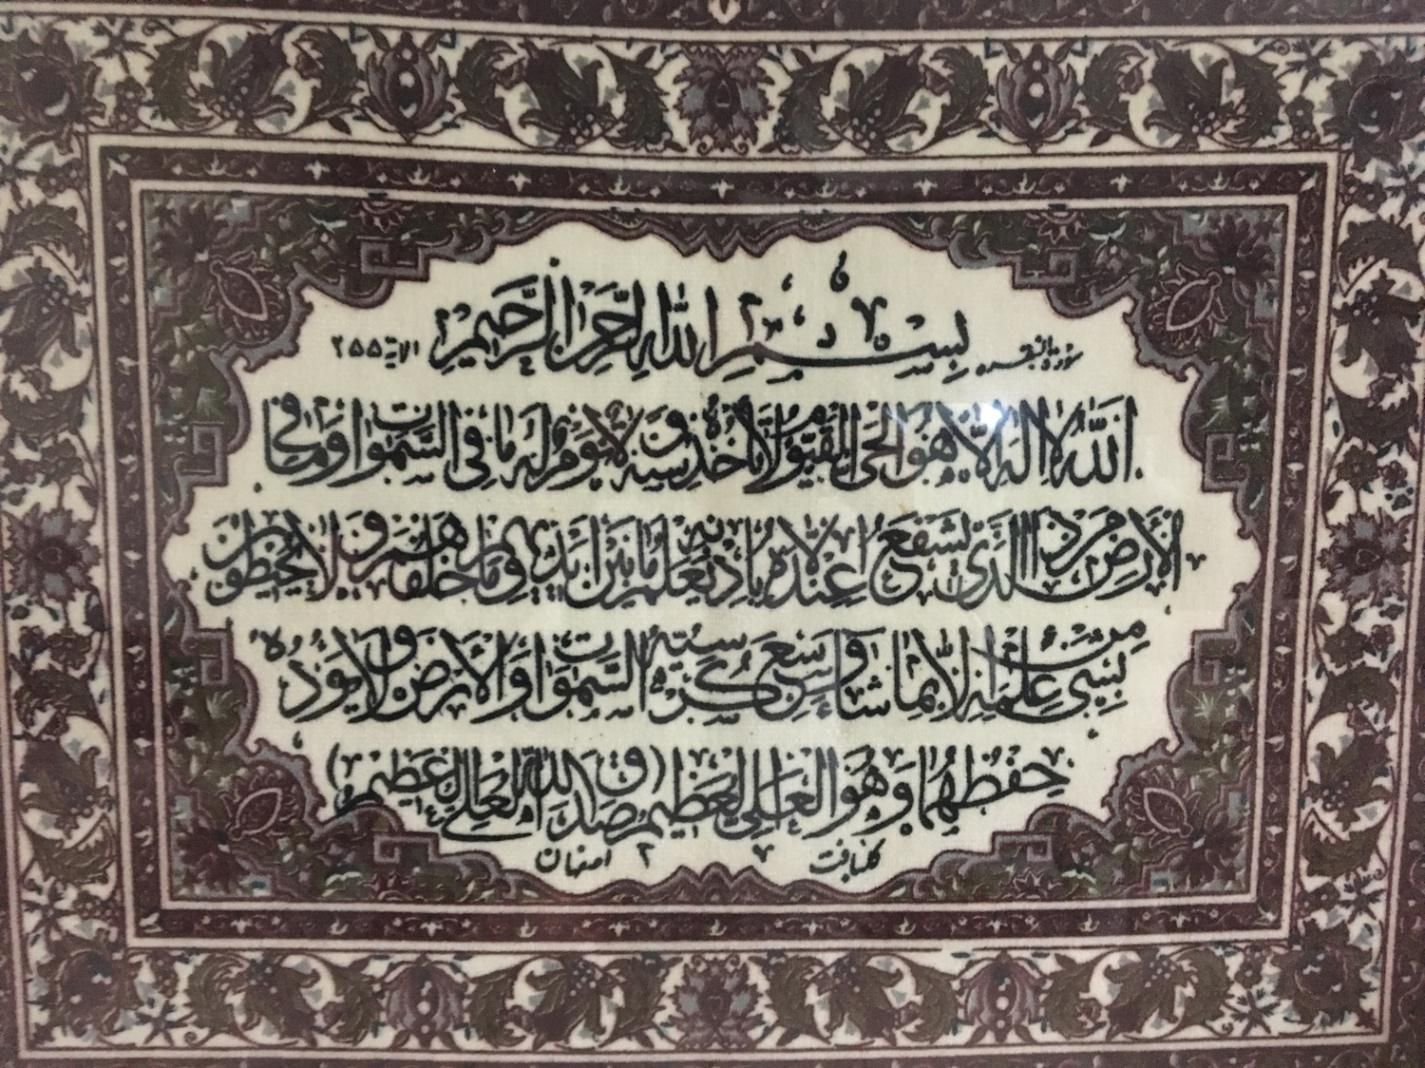 سورة البقره بسم الله الرحمن الرحيم الاية ٢٥٥
الله لا اله الا هو الحي القيوم لا تأخذه سنة ولا نوم له ما في السموات وما في
الأرض من ذا الذي يشفع عنده إلا بإذنه يعلم ما بين ايديهم وما خلفهم ولا يحيطون
بشيء من علمه الا بما شاء وسع كرسيه السموات والأرض ولا يؤده
حفظهما وهو العلي العظيم (صدق الله العلي العظيم)
اصفهان